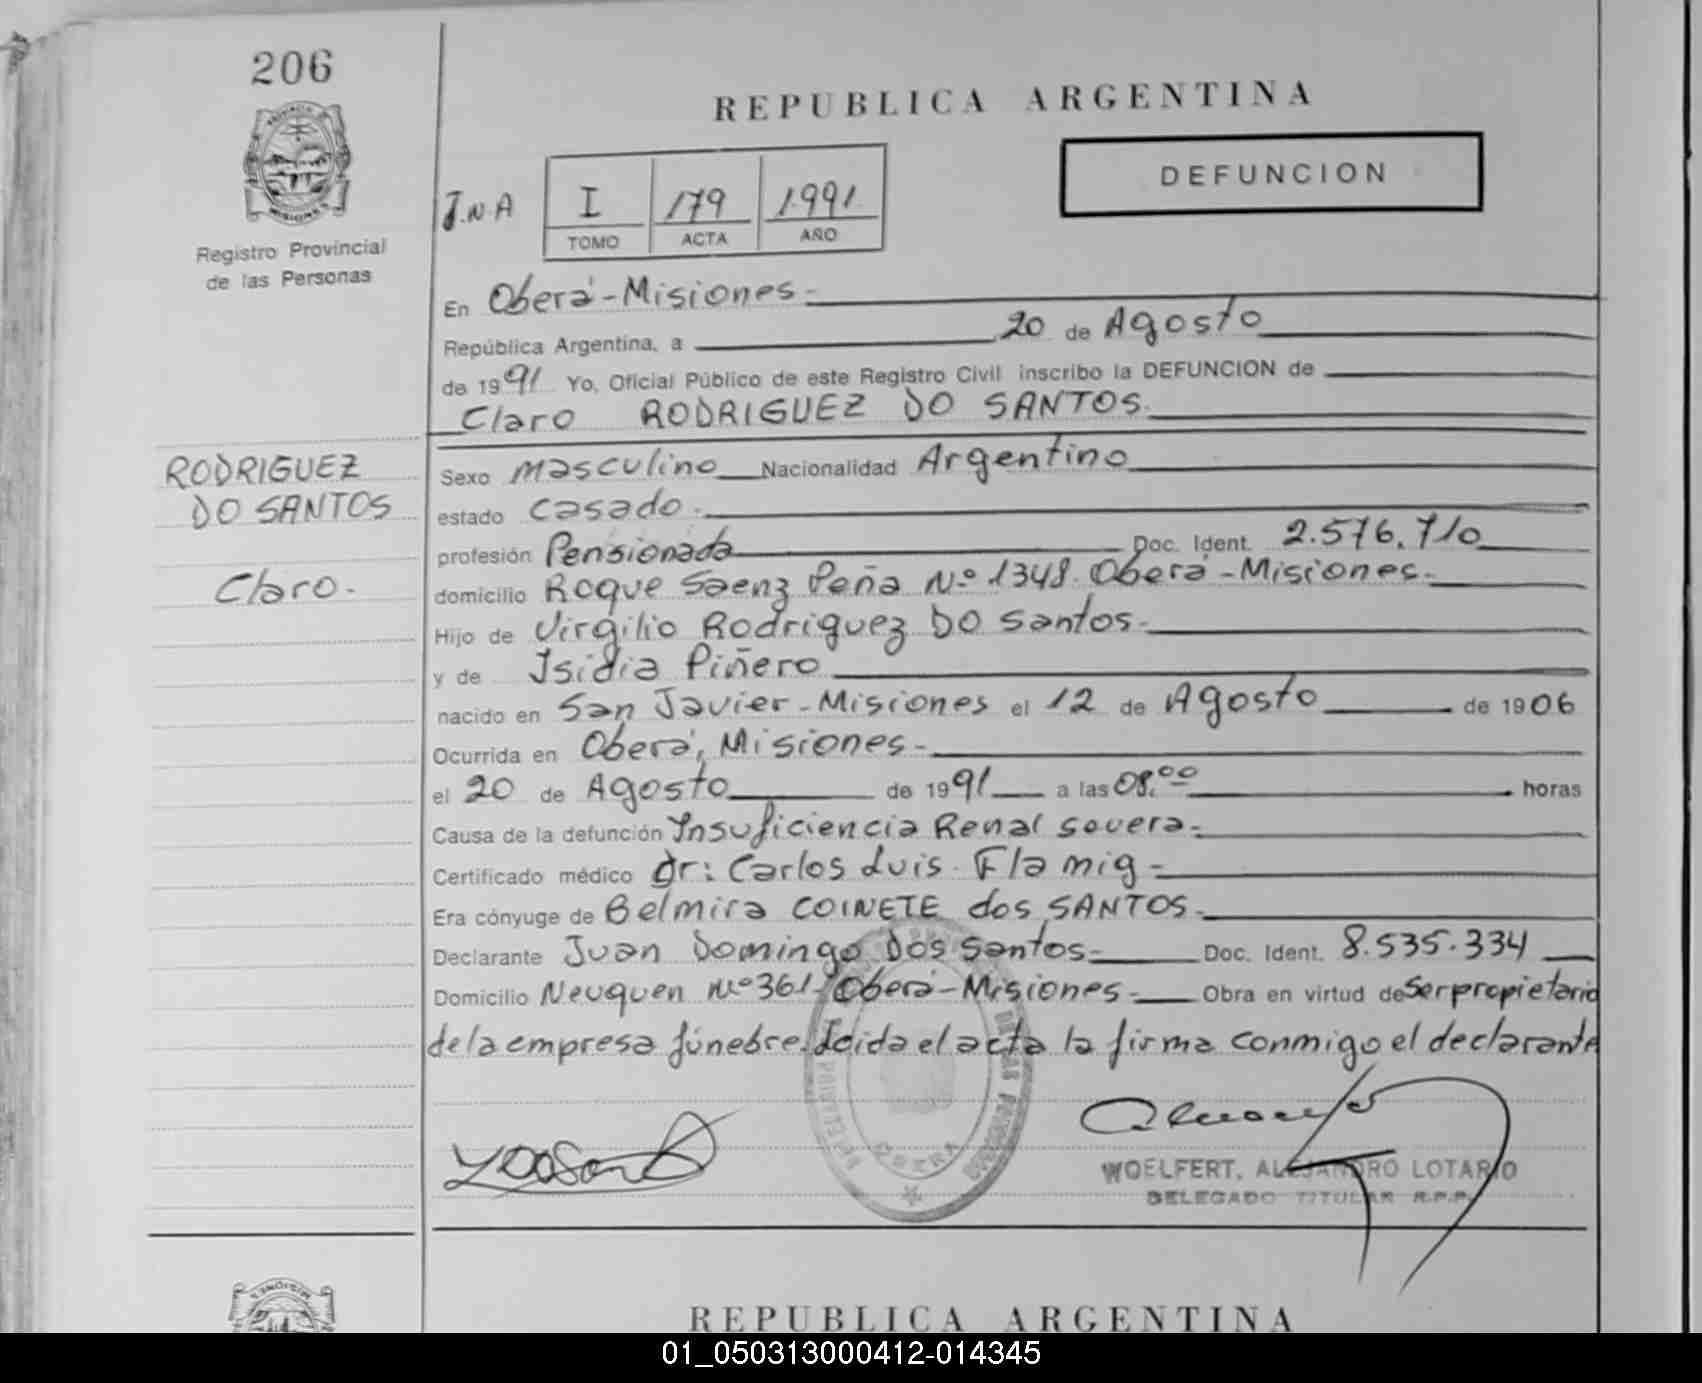 206
REPUBLICA ARGENTINA
DEFUNCION
J.N.A
I 179 1991
TOMO ACTA AÑO
MISIONES
Registro Provincial
de las Personas
En Oberá-Misiones.-
República Argentina, a 20 de Agosto
de 1991 Yo, Oficial Público de este Registro Civil inscribo la DEFUNCION de
Claro RODRIGUEZ DO SANTOS.
RODRIGUEZ
DO SANTOS
Claro.-
Sexo masculino Nacionalidad Argentino
estado casado.-
profesión Pensionada Doc. Ident. 2.576.710
domicilio Roque Saenz Peña Nº 1348. Oberá-Misiones.-
Hijo de Virgilio Rodriguez DO Santos.-
y de Isidia Piñero
nacido en San Javier-Misiones el 12 de Agosto de 1906
Ocurrida en Oberá, Misiones.-
el 20 de Agosto de 1991 a las 08.00 horas
Causa de la defunción Insuficiencia Renal severa.-
Certificado médico dr: Carlos Luis Flamig-
Era cónyuge de Belmira COINETE dos SANTOS.-
Declarante Juan Domingo Dos Santos.- Doc. Ident. 8.535.334
Domicilio Neuquen Nº 361-Oberá-Misiones.- Obra en virtud de Ser propietario
de la empresa fúnebre. Leida el acta la firma conmigo el declarante
OBERA
WOELFERT, ALEJANDRO LOTARIO
DELEGADO TITULAR R.P.P.
MISIONES
REPUBLICA ARGENTINA
01_050313000412-014345